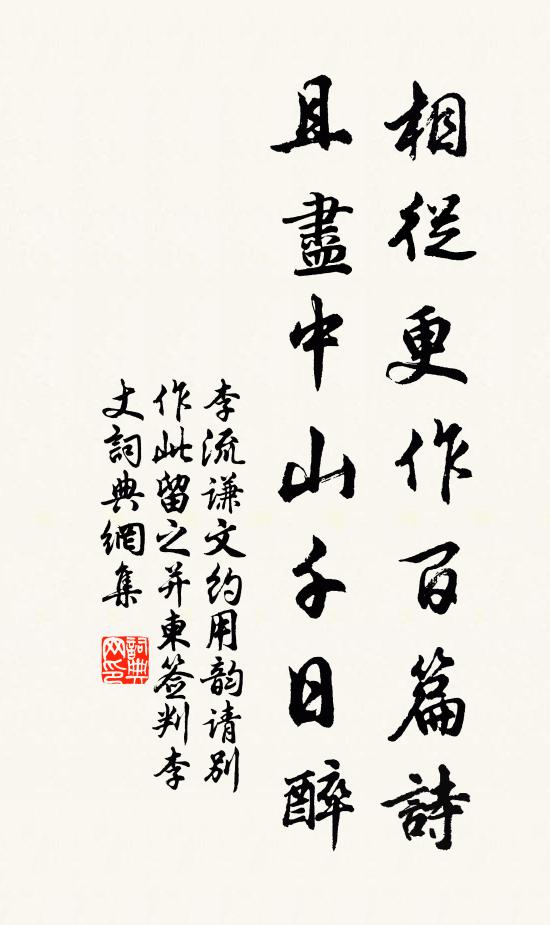 相從更作百篇詩
且盡中山千日醉
李流谦文约用韵请别
作此留之并東签判李
丈詞典網集
詞典網印